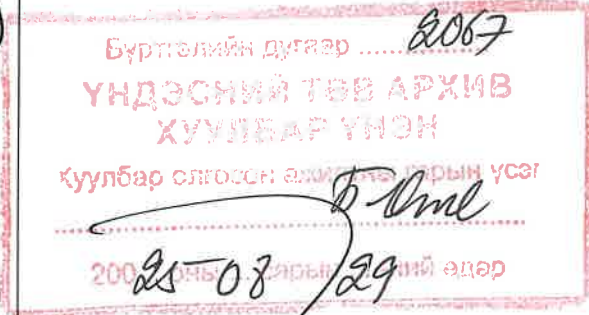 Бүртгэлийн дугаар ........ 2067
ҮНДЭСНИЙ ТӨВ АРХИВ
ХУУЛБАР ҮНЭН
Хуулбар олгосон ажилтны гарын үсэг
200 оны сарын ний өдөр
25-08 29